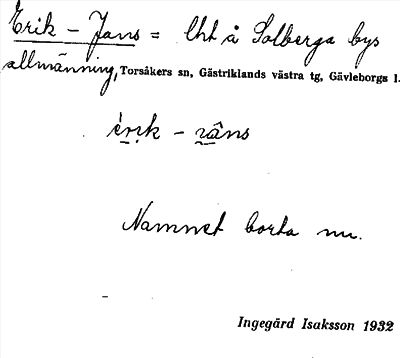 Erik - Jans = lht å Solberga bys
allmänning, Torsåkers sn, Gästriklands västra tg, Gävleborgs l.
érik - râns
Namnet borta nu.
Ingegärd Isaksson 1932